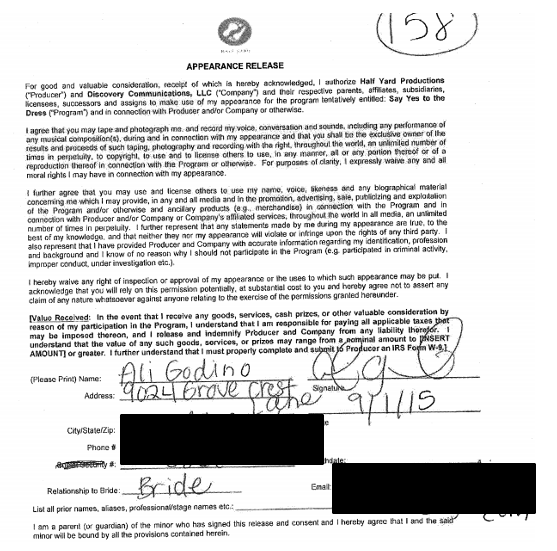 158
HALF YARD
APPEARANCE RELEASE
For good and valuable consideration, receipt of which is hereby acknowledged, I authorize Half Yard Productions
("Producer") and Discovery Communications, LLC ("Company") and their respective parents, affiliates, subsidiaries,
licensees, successors and assigns to make use of my appearance for the program tentatively entitled: Say Yes to the
Dress ("Program") and in connection with Producer and/or Company or otherwise.
I agree that you may tape and photograph me, and record my voice, conversation and sounds, including any performance of
any musical composition(s), during and in connection with my appearance and that you shall be the exclusive owner of the
results and proceeds of such taping, photography and recording with the right, throughout the world, an unlimited number of
times in perpetuity, to copyright, to use and to license others to use, in any manner, all or any portion thereof or of a
reproduction thereof in connection with the Program or otherwise. For purposes of clarity, I expressly waive any and all
moral rights I may have in connection with my appearance.
I further agree that you may use and license others to use my name, voice, likeness and any biographical material
concerning me which I may provide, in any and all media and in the promotion, advertising, sale, publicizing and exploitation
of the Program and/or otherwise and ancillary products (e.g., merchandise) in connection with the Program and in
connection with Producer and/or Company or Company's affiliated services, throughout the world in all media, an unlimited
number of times in perpetuity. I further represent that any statements made by me during my appearance are true, to the
best of my knowledge, and that neither they nor my appearance will violate or infringe upon the rights of any third party. I
also represent that I have provided Producer and Company with accurate information regarding my identification, profession
and background and I know of no reason why I should not participate in the Program (e.g. participated in criminal activity,
improper conduct, under investigation etc.).
I hereby waive any right of inspection or approval of my appearance or the uses to which such appearance may be put. I
acknowledge that you will rely on this permission potentially, at substantial cost to you and hereby agree not to assert any
claim of any nature whatsoever against anyone relating to the exercise of the permissions granted hereunder.
[Value Received: In the event that I receive any goods, services, cash prizes, or other valuable consideration by
reason of my participation in the Program, I understand that I am responsible for paying all applicable taxes that
may be imposed thereon, and I release and indemnify Producer and Company from any liability therefor. I
understand that the value of any such goods, services, or prizes may range from a nominal amount to [INSERT
AMOUNT] or greater. I further understand that I must properly complete and submit to Producer an IRS Form W-9.]
(Please Print) Name: Ali Godino
Signature
Address: 9024 Grove Crest
Lane 9/1/15
City/State/Zip:
Phone #
#:
Relationship to Bride: Bride Email:
List all prior names, aliases, professional/stage names etc.:
I am a parent (or guardian) of the minor who has signed this release and consent and I hereby agree that I and the said
minor will be bound by all the provisions contained herein.